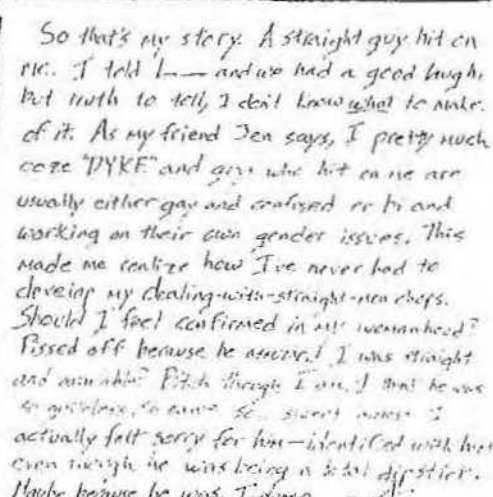 So that's my story. A straight guy hit on
me. I told L—— and we had a good laugh,
but truth to tell, I don't know what to make
of it. As my friend Jen says, I pretty much
ooze "DYKE" and guys who hit on me are
usually either gay and confused or bi and
working on their own gender issues. This
made me realize how I've never had to
develop my dealing-with-straight-men chops.
Should I feel confirmed in my womanhood?
Pissed off because he assumed I was straight
and available? Bitch though I am, I he was
so so so sweet I
actually felt sorry for him—identified with him
even though he was being a total dipstick.
Maybe because he was